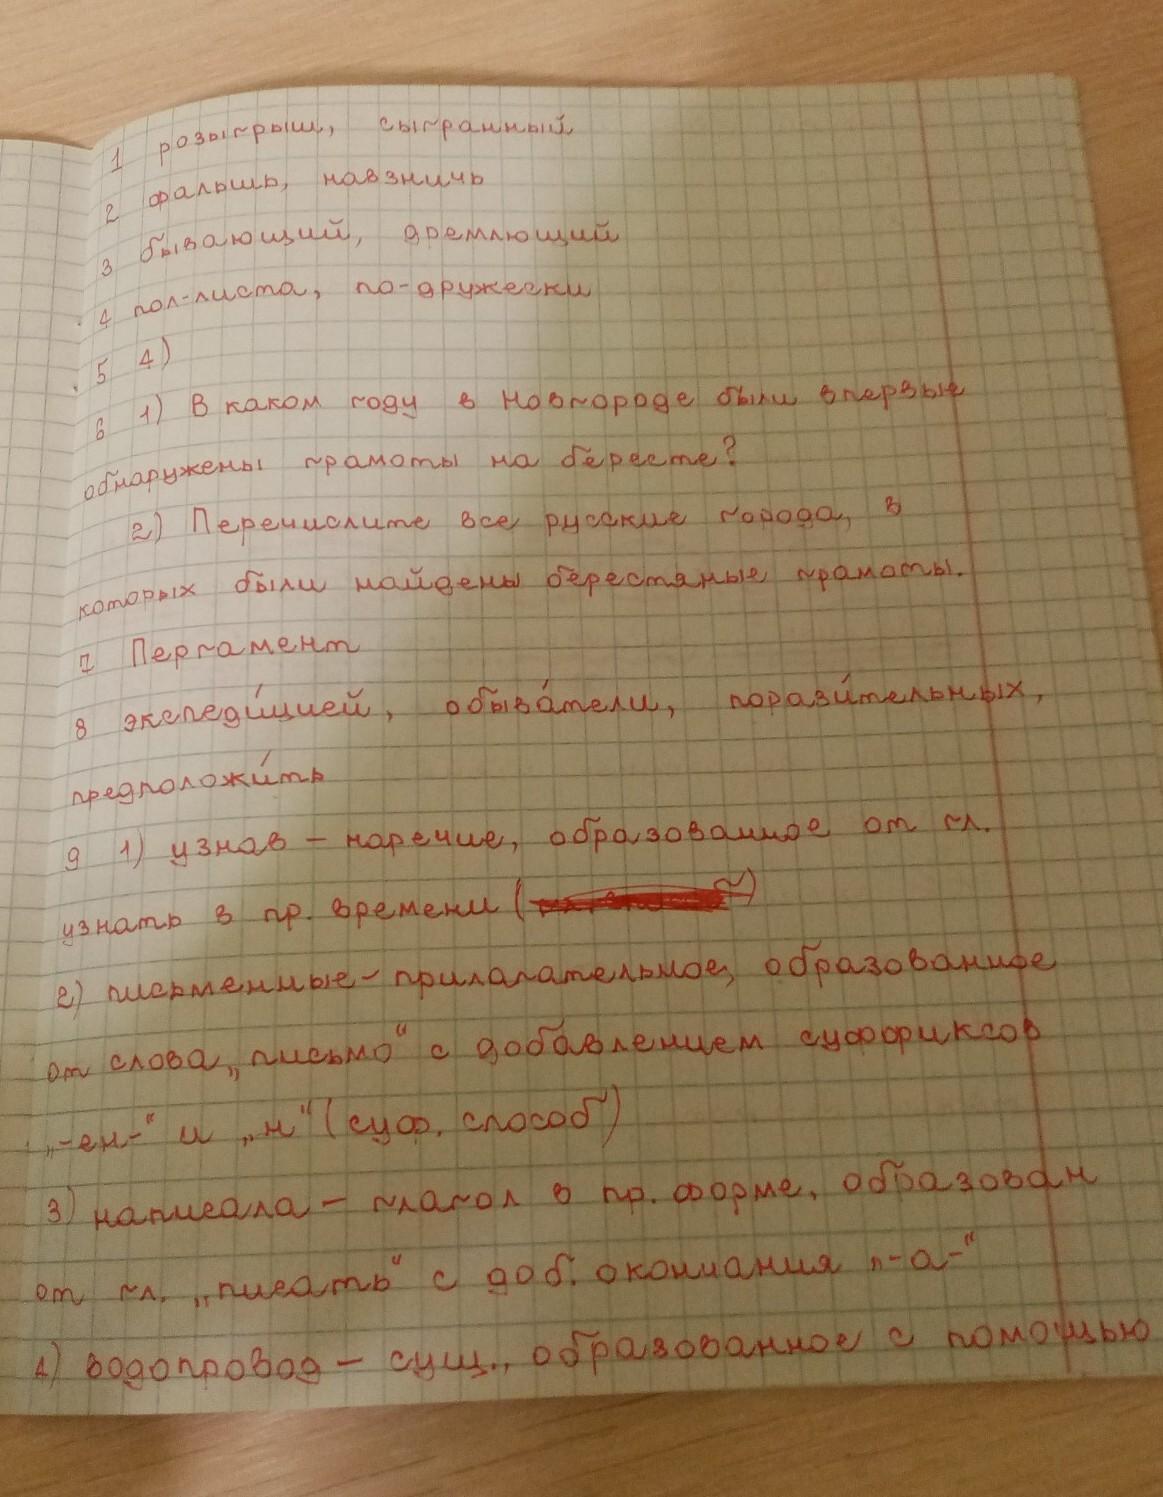 1 розыгрыш, сыгранный
2 фальшь, навзничь
3 бывающий, дремлющий
4 пол-листа, по-дружески
5 4)
6 1) В каком году в Новгороде были впервые
обнаружены грамоты на бересте?
2) Перечислите все русские города, в
которых были найдены берестяные грамоты.
7 Пергамент
8 экспеди́цией, обыва́тели, порази́тельных,
предположи́ть
9 1) узнав – наречие, образованное от гл.
узнать в пр. времени (
2) письменные – прилагательное, образованное
от слова „письмо“ с добавлением суффиксов
„-ен-“ и „н“ (суф. способ)
3) написала – глагол в пр. форме, образован
от гл. „писать“ с доб. окончания „-а-“
4) водопровод – сущ., образованное с помощью